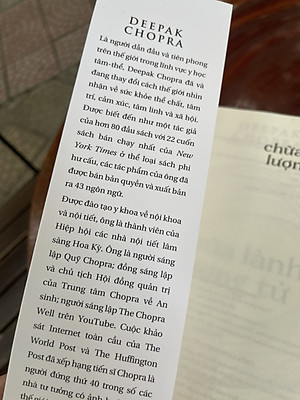 DEEPAK
CHOPRA
Là người dẫn đầu và tiên phong
trên thế giới trong lĩnh vực y học
tâm-thể, Deepak Chopra đã và
đang thay đổi cách thế giới nhìn
nhận về sức khỏe thể chất, tâm
trí, cảm xúc, tâm linh và xã hội.
Được biết đến như một tác giả
của hơn 80 đầu sách với 22 cuốn
sách bán chạy nhất của New
York Times ở thể loại sách phi
hư cấu, các tác phẩm của ông đã
được bán bản quyền và xuất bản
ra 43 ngôn ngữ.
Được đào tạo y khoa về nội khoa
và nội tiết, ông là thành viên của
Hiệp hội các nhà nội tiết lâm
sàng Hoa Kỳ. Ông là người sáng
lập Quỹ Chopra; đồng sáng lập
và chủ tịch Hội đồng quản trị
của Trung tâm Chopra về An
sinh; người sáng lập The Chopra
Well trên YouTube. Cuộc khảo
sát Internet toàn cầu của The
World Post và The Huffington
Post đã xếp hạng tiến sĩ Chopra là
người đứng thứ 40 trong số các
nhà tư tưởng có ảnh
chữa
lượn